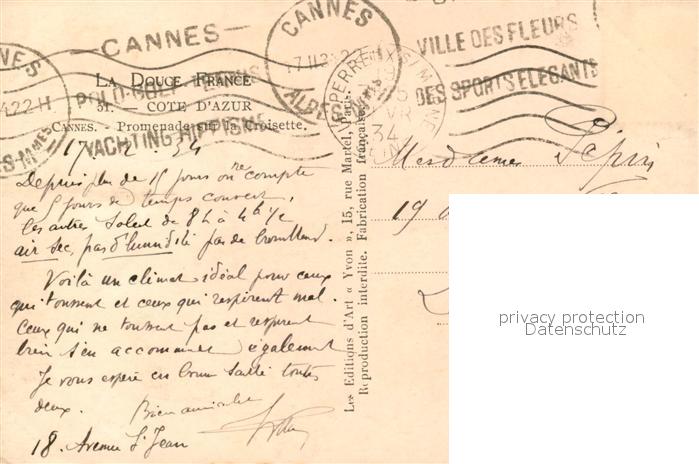 CANNES
CANNES
VILLE DES FLEURS
DES SPORTS ELEGANTS
LA DOUCE FRANCE
31. — COTE D'AZUR
CANNES. - Promenade sur la Croisette.
POLO GOLF TENNIS
YACHTING HIPPISME
17 2 34
Depuis plus de 15 jours on ne compte
que 5 jours de temps couvert,
les autres soleil de 8h à 4h 1/2
air sec, pas d'humidité pas de brouillard.
Voilà un climat idéal pour ceux
qui toussent et ceux qui respirent mal.
Ceux qui ne toussent pas et respirent
bien s'en accommodent également
Je vous espère en bonne santé toutes
deux. Bien amicalement
18 Avenue St Jean
Les Editions d'Art « Yvon », 15, rue Martel, Paris
Reproduction interdite. Fabrication française
Mesdames Pépin
19
privacy protection
Datenschutz